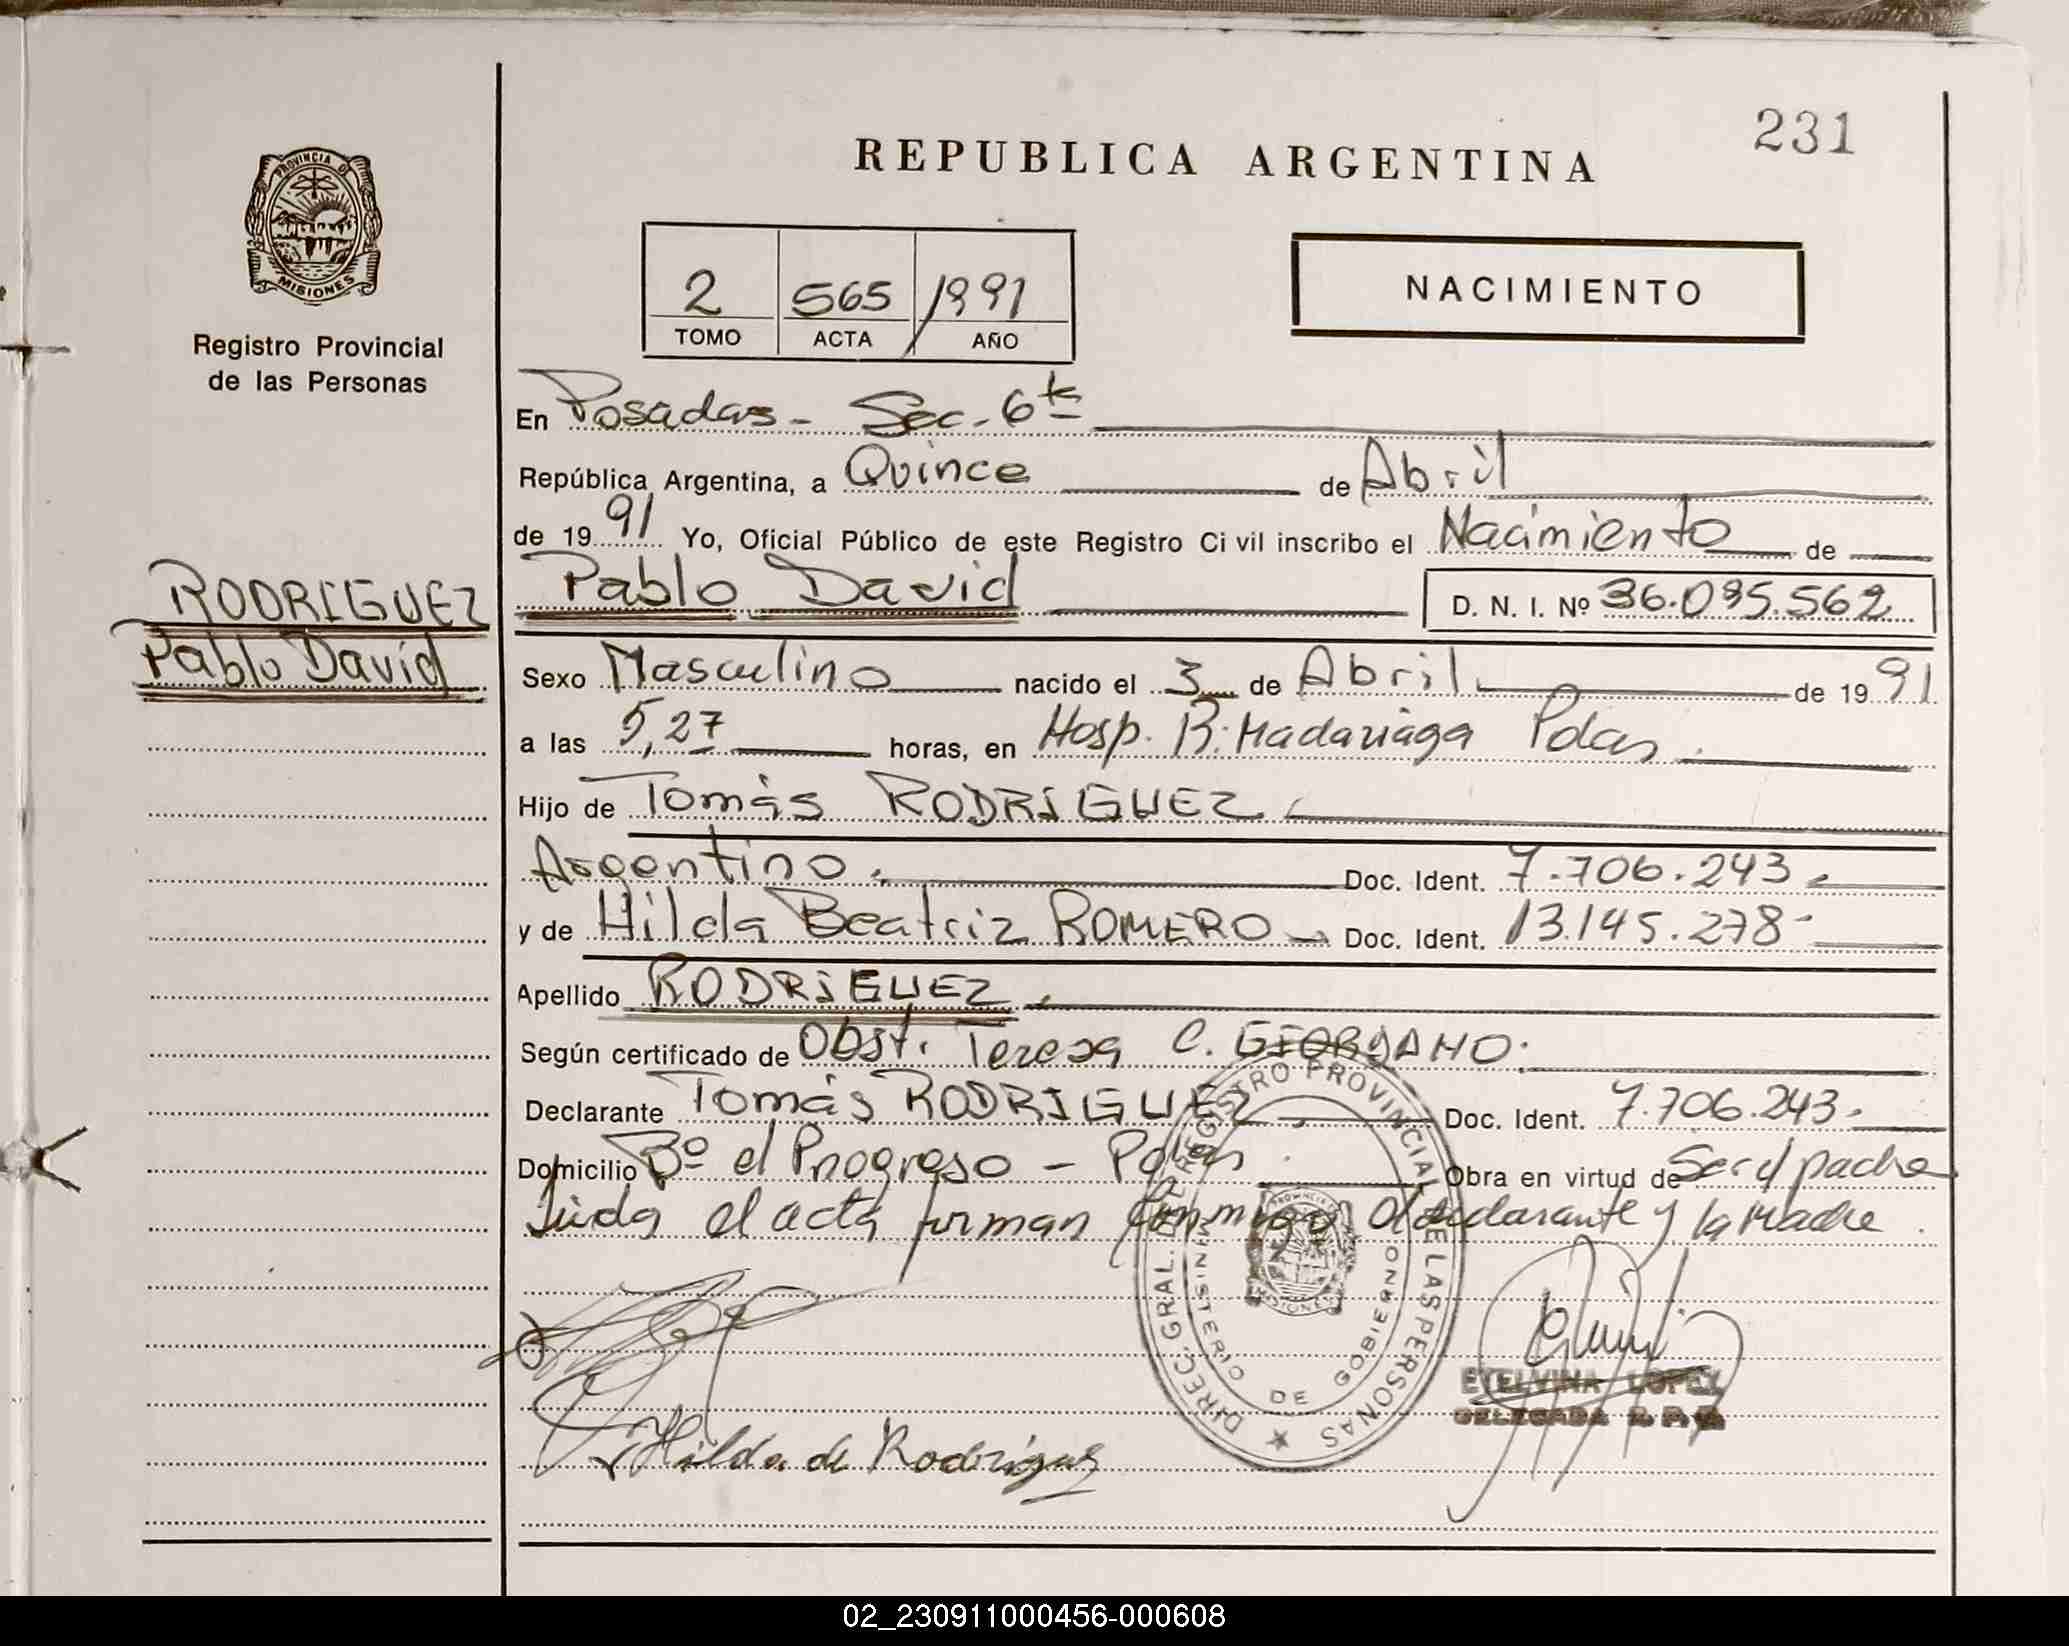 231
REPUBLICA ARGENTINA
PROVINCIA DE
MISIONES
Registro Provincial
de las Personas
2 565 1991
TOMO ACTA AÑO
NACIMIENTO
En Posadas - Sec. 6ta
República Argentina, a Quince de Abril
de 1991 Yo, Oficial Público de este Registro Civil inscribo el Nacimiento de
RODRIGUEZ
Pablo David
Pablo David D. N. I. Nº 36.095.562
Sexo Masculino nacido el 3 de Abril de 1991
a las 5,27 horas, en Hosp. R. Madariaga Pdas.
Hijo de Tomás RODRIGUEZ
Argentino. Doc. Ident. 7.706.243.
y de Hilda Beatriz ROMERO Doc. Ident. 13.145.278-
Apellido RODRIGUEZ.
Según certificado de Obst. Teresa C. GIORDANO.
Declarante Tomás RODRIGUEZ Doc. Ident. 7.706.243.
Domicilio Bº el Progreso - Pdas. Obra en virtud de Ser el padre
Leida el acta firman conmigo el declarante y la Madre.
DIREC. GRAL. DE REGISTRO PROVINCIAL DE LAS PERSONAS
MINISTERIO DE GOBIERNO
Hilda de Rodriguez
ETELVINA LOPEZ
DELEGADA R. P. P.
02_230911000456-000608